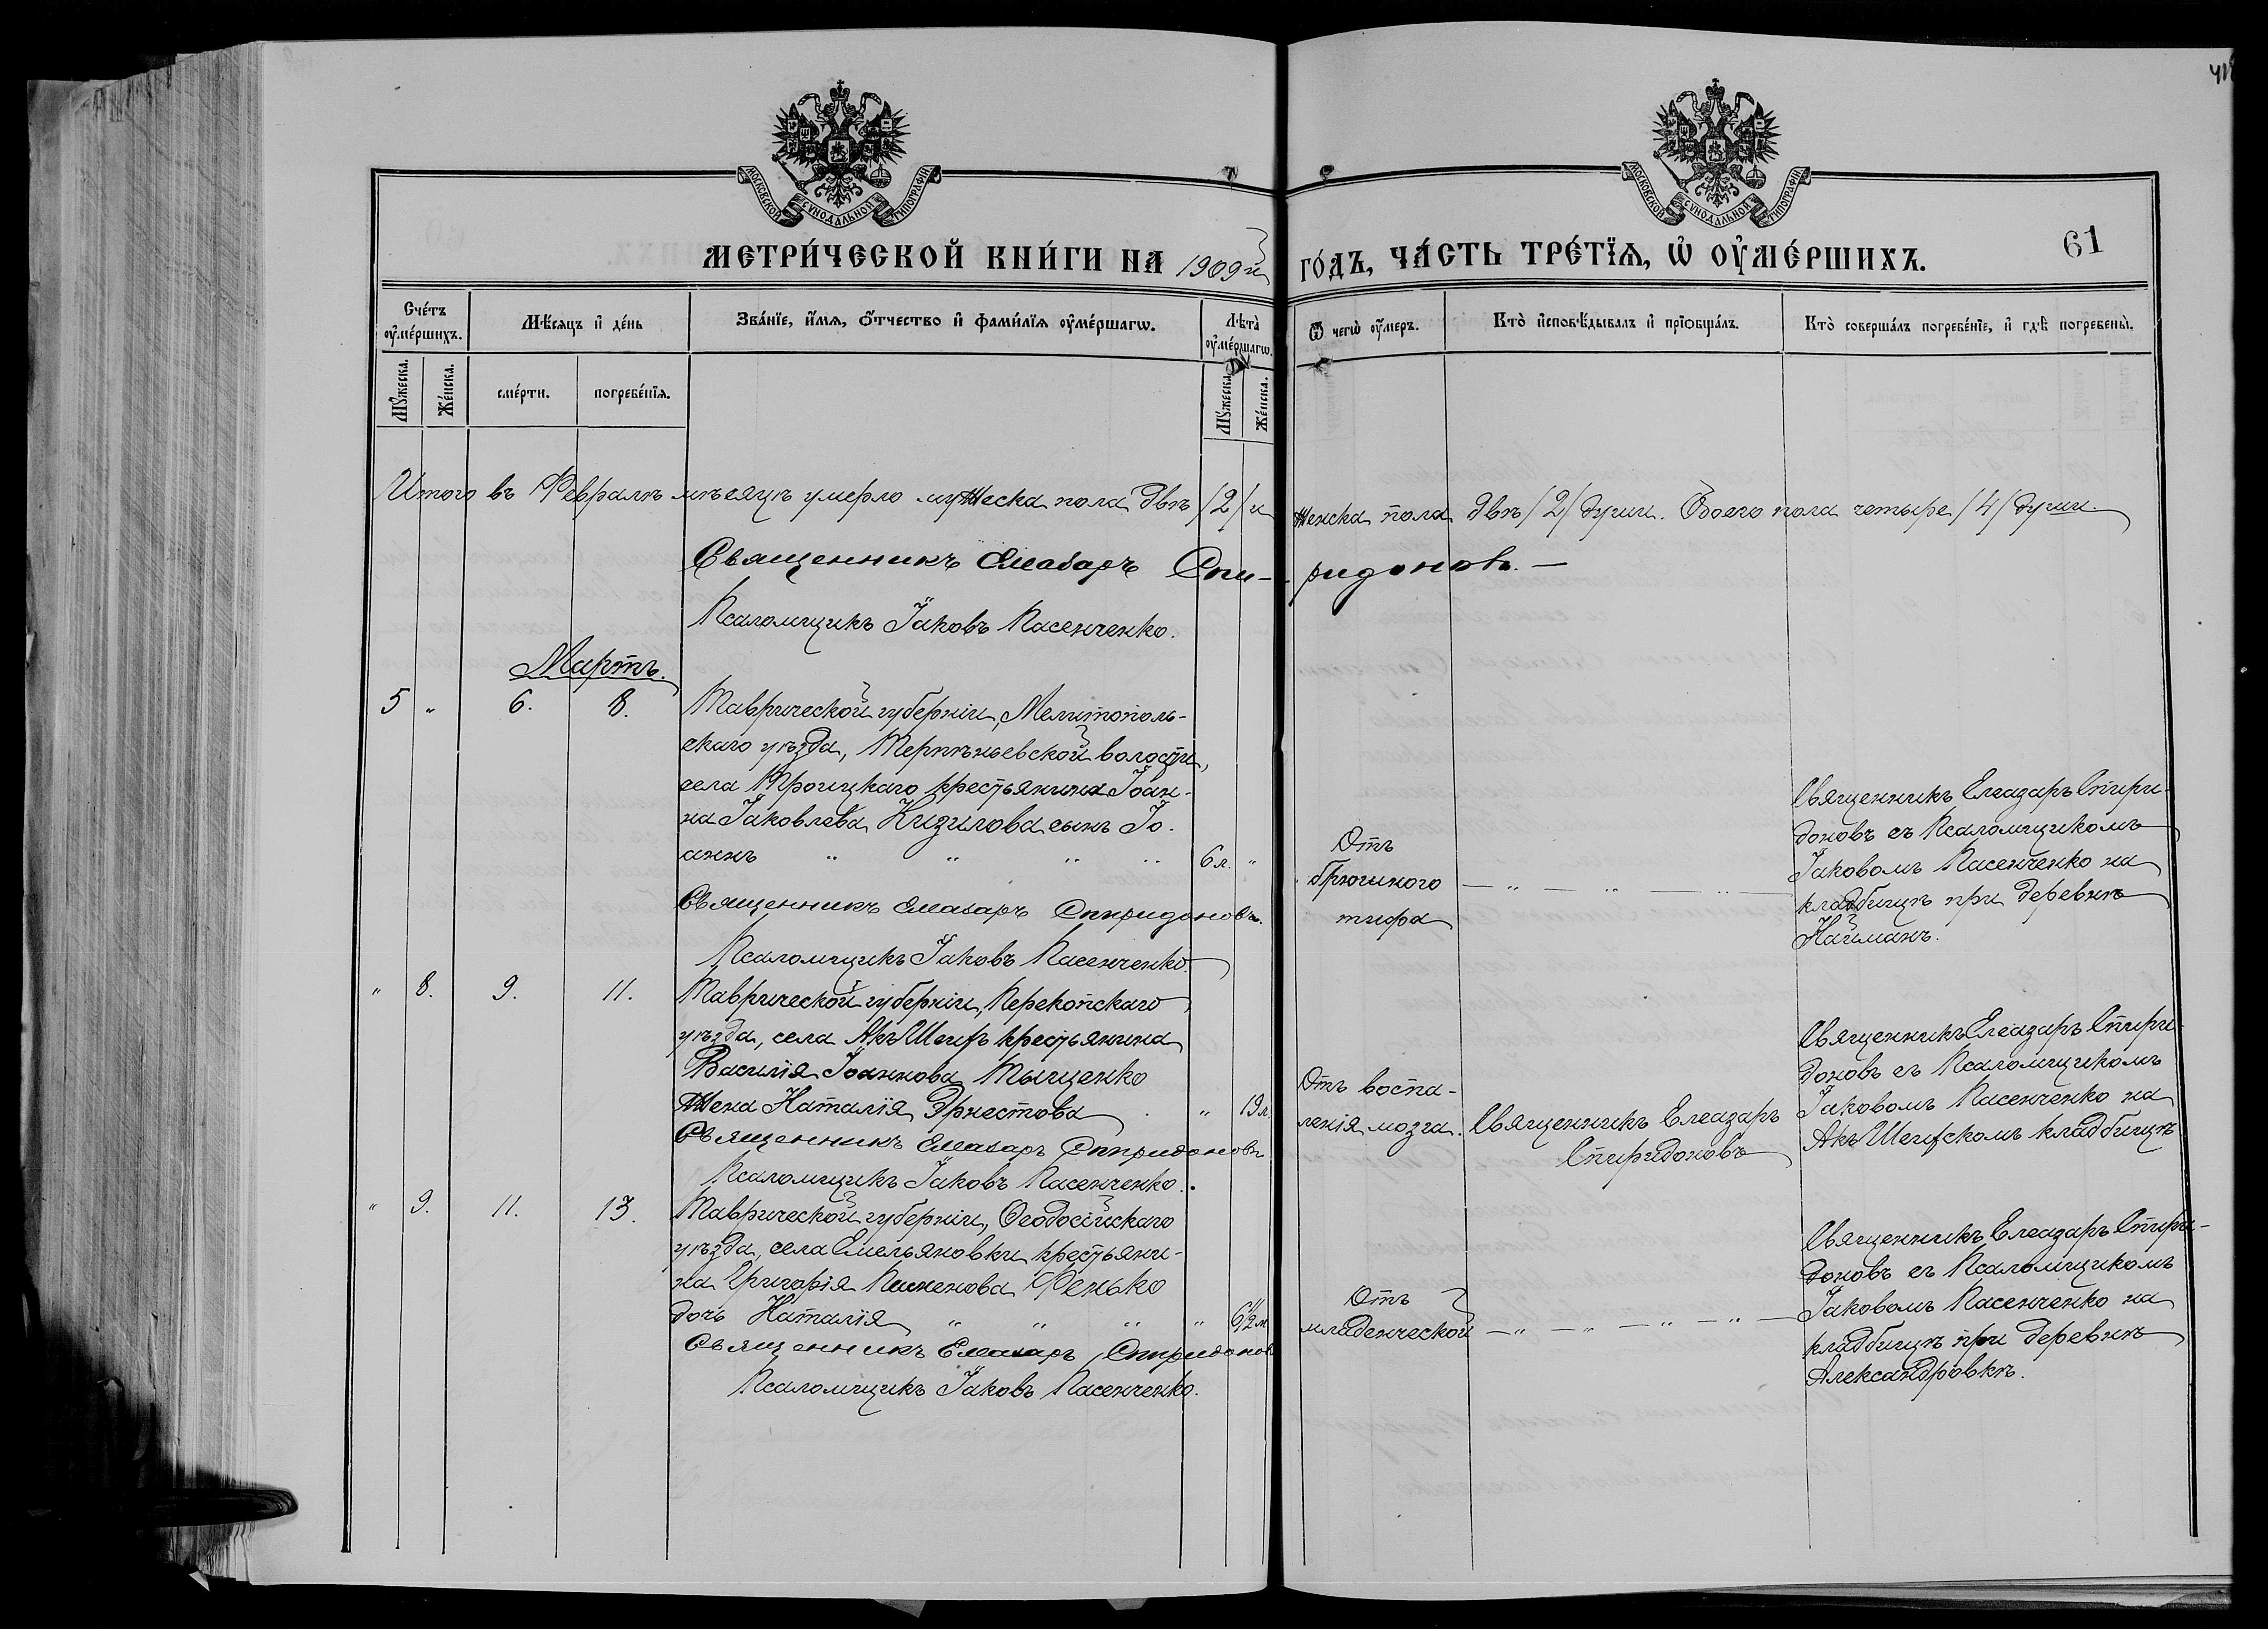 МОСКОВСКОЙ СУНОДАЛЬНОЙ ТИПОГРАФІИ
МОСКОВСКОЙ СУНОДАЛЬНОЙ ТИПОГРАФІИ
МЕТРИ́ЧЕСКОЙ КНИ́ГИ НА 1909й ГО́ДЪ, ЧА́СТЬ ТРЕ́ТЇѦ, Ѽ ОУ҆МЕ́РШИХЪ.
61
Сче́тъ оу҆ме́ршихъ.
Мѣ́сѧцъ и҆ де́нь
Зва́нїе, и҆́мѧ, ѻ҆́тчество и҆ фами́лїѧ оу҆ме́ршагѡ.
Лѣта̀ оу҆ме́ршагѡ.
Ѿ чегѡ̀ оу҆́меръ.
Кто̀ и҆сповѣ́дывалъ и҆ прїѻбща́лъ.
Кто̀ соверша́лъ погребе́нїе, и҆ гдѣ̀ погребены̀.
Му́жеска.
Же́нска.
сме́рти.
погребе́нїѧ.
Му́жеска.
Же́нска.
Итого въ Февралѣ мѣсяцѣ умерло мужеска пола двѣ /2/ и женска пола двѣ /2/ души. Обоего пола четыре /4/ души.
Священникъ Елеазаръ Спиридоновъ. —
Псаломщикъ Іаковъ Пасенченко.
Мартъ.
5 " 6. 8. Таврической губерніи, Мелитополь-
скаго уѣзда, Терпѣньевской волости,
села Троицкаго крестьянина Іоан-
на Іаковлева Кизилова сынъ Іо-
аннъ " " " " 6 л. "
Отъ
брюшного
тифа
— " — " — " —
Священникъ Елеазаръ Спири-
доновъ съ Псаломщикомъ
Іаковомъ Пасенченко на
кладбищѣ при деревнѣ
Найманъ.
Священникъ Елеазаръ Спиридоновъ.
Псаломщикъ Іаковъ Пасенченко.
" 8. 9. 11. Таврической губерніи, Перекопскаго
уѣзда, села Акъ Шеихъ крестьянина
Василія Іоаннова Тыщенко
жена Наталія Эрнестова " 19 л.
Отъ воспа-
ленія мозга.
Священникъ Елеазаръ
Спиридоновъ
Священникъ Елеазаръ Спири-
доновъ съ Псаломщикомъ
Іаковомъ Пасенченко на
Акъ Шеихскомъ кладбищѣ
Священникъ Елеазаръ Спиридоновъ
Псаломщикъ Іаковъ Пасенченко.
" 9. 11. 13. Таврической губерніи, Ѳеодосійскаго
уѣзда, села Емельяновки крестьяни-
на Григорія Фенько
дочь Наталія " " " " 6 1/2 м.
Отъ
младенческой
— " — " — " — " —
Священникъ Елеазаръ Спири-
доновъ съ Псаломщикомъ
Іаковомъ Пасенченко на
кладбищѣ при деревнѣ
Александровкѣ.
Священникъ Елеазаръ Спиридоновъ
Псаломщикъ Іаковъ Пасенченко.